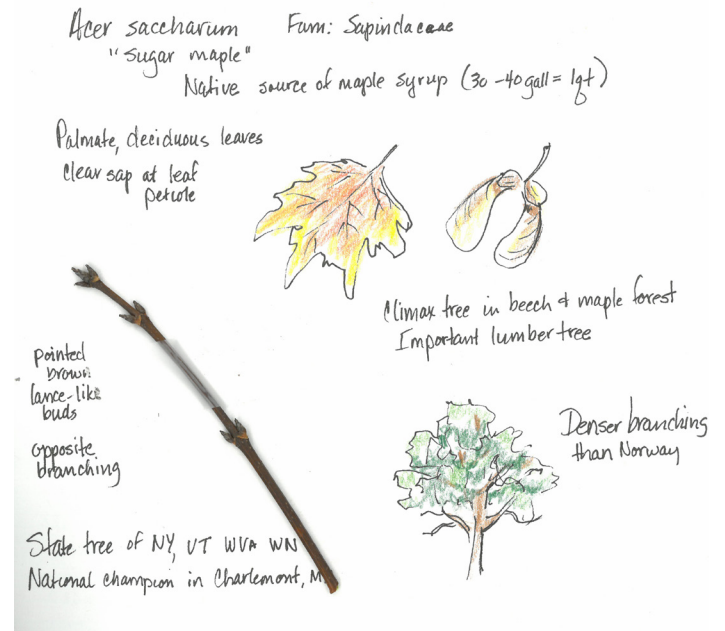 Acer saccharum Fam: Sapindaceae
"Sugar maple"
Native source of maple syrup (30-40 gall = 1qt)
Palmate, deciduous leaves
Clear sap at leaf
petiole
Climax tree in beech & maple forest
Important lumber tree
pointed
brown
lance-like
buds
opposite
branching
Denser branching
than Norway
State tree of NY, VT WVA WN
National champion in Charlemont, M